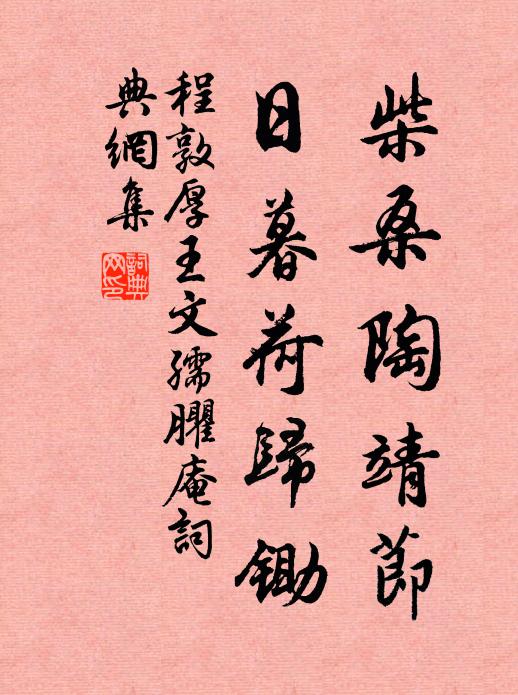 柴桑陶靖節
日暮荷歸鋤
程敦厚王文孺臞庵詞
典網集
詞典网印